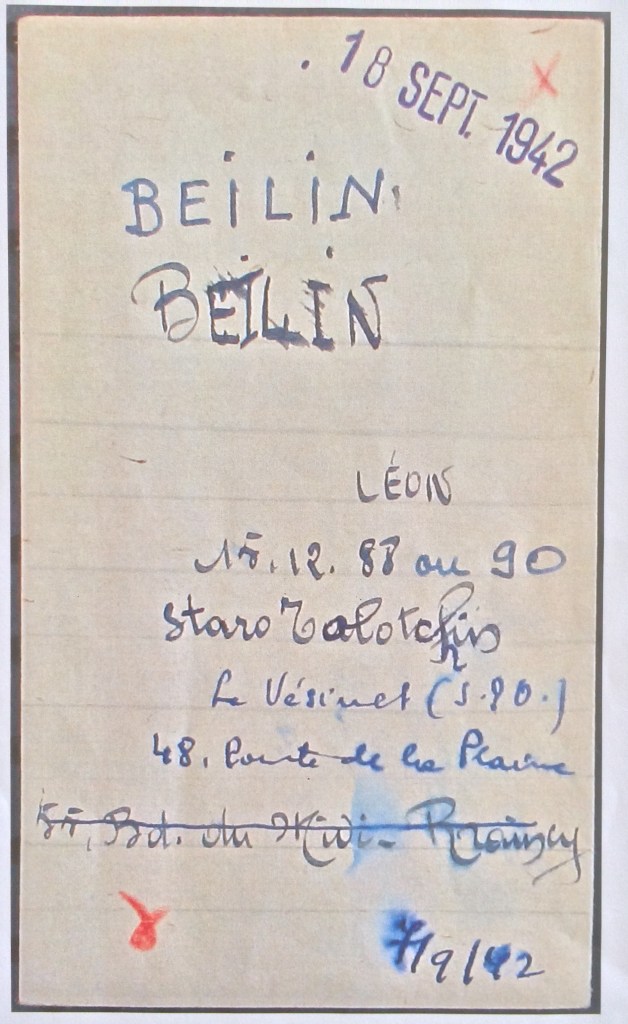 18 SEPT. 1942
BEILIN
BEILIN
LÉON
15.12.88 ou 90
Staro
Le Vésinet (S.&O.)
48, route de la Plaine
55, Bd. du Midi - Raincy
7/9/42